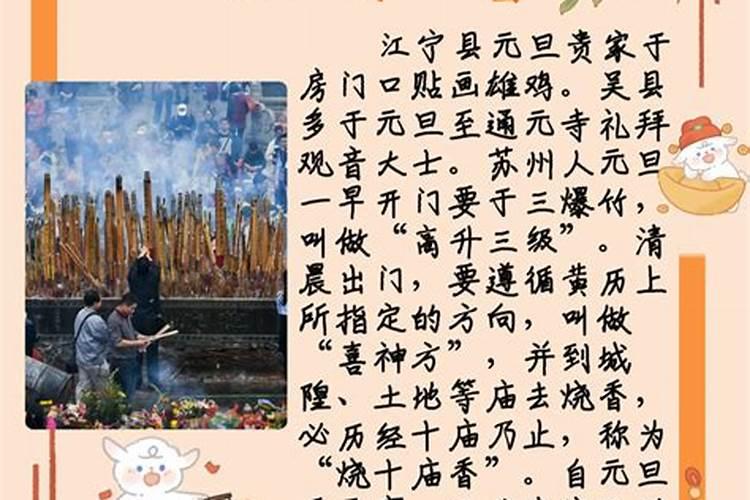 江宁县元旦贵家于
房门口贴画雄鸡。吴县
多于元旦至通元寺礼拜
观音大士。苏州人元旦
一早开门要于三爆竹，
叫做“高升三级”。清
晨出门，要遵循黄历上
所指定的方向，叫做
“喜神方”，并到城
隍、土地等庙去烧香，
必历经十庙乃止，称为
“烧十庙香”。自元旦